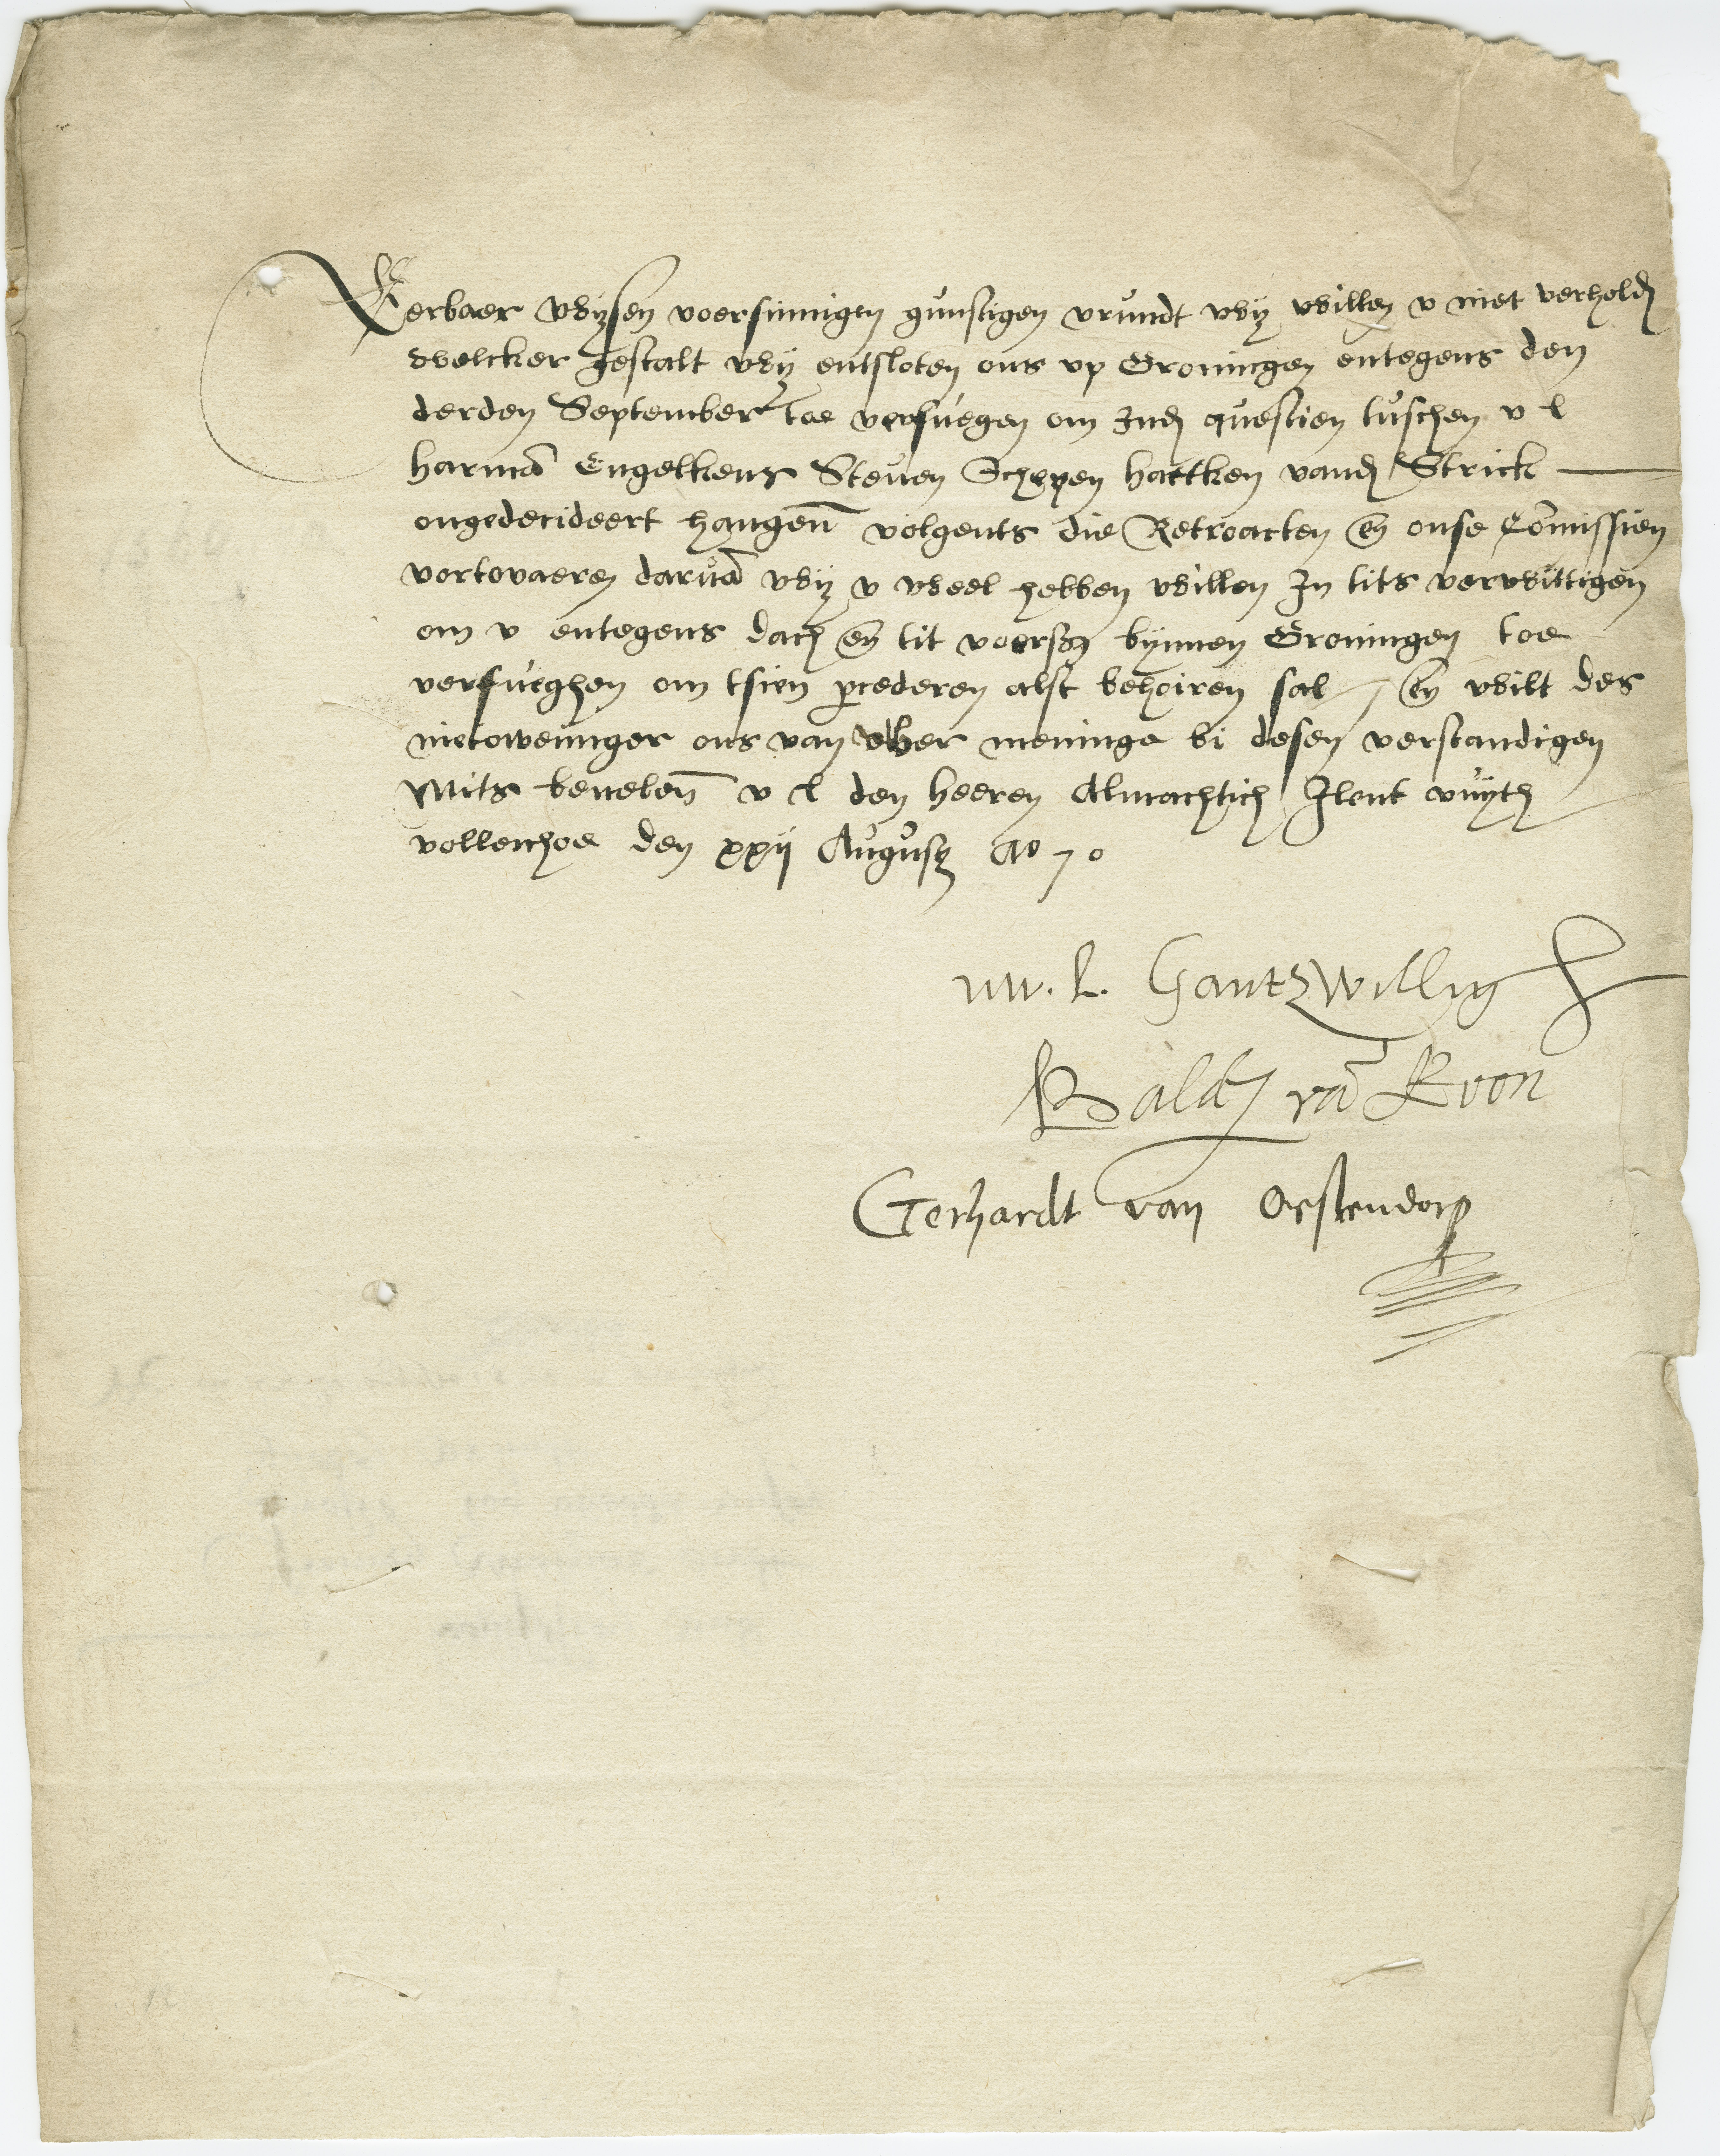 Eerbaer wysen voersinnigen gunstigen vrundt wy willen v niet verhold
welcker gestalt wy entsloten ons vp Groningen entegens den
derden September toe verfuegen om Ind questien tusschen v l
harma Engelkens Steuen Schepen hartken vand Strick
ongedecideert hangen volgents die Retroacten en onse Comissien
vortovaeren darva wy v weel hebben willen In tits verwittigen
om v entegens dach en tit voersz bynnen Groningen toe
verfueghen om tsien procederen alst behoiren sal / en wilt des
nietoweiniger ons van uwer meninge bi desen verstandigen
Mits beuelen v l den heeren Almachtich Ilent vuyth
vollenhoe den xxij Augusti Ao 70
uw. l. Gantzwillig
Bald va Loon
Gerhardt van Oestendorp